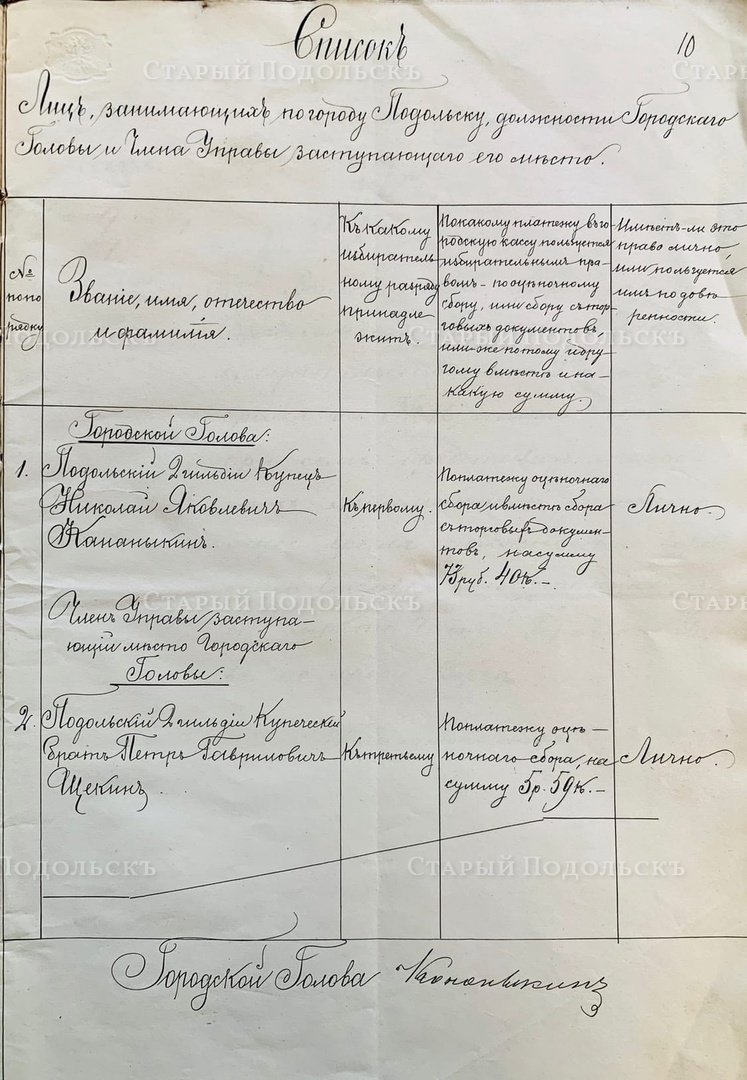 Списокъ
10
Лицъ, занимающихъ по городу Подольску, должности Городскаго
Головы и Члена Управы, заступающаго его мѣсто.
№
по по
рядку
Званіе, имя, отчество
и фамилія.
Къ какому
избиратель
ному разряду
принадле
житъ.
По какому платежу въ го
родскую кассу пользуется
избирательнымъ пра-
вомъ - по оцѣночному
сбору, или сбору съ тор
говыхъ документовъ,
или же по тому и дру
гому вмѣстѣ и на
какую сумму.
Имѣетъ-ли это
право лично,
или пользуется
имъ по довѣ
ренности.
Городской Голова:
1. Подольскій 2 гильдіи Купецъ
Николай Яковлевичъ
Кананыкинъ.
Къ первому.
По платежу оцѣночнаго
сбора и вмѣстѣ сбора
съ торговыхъ докумен-
товъ, на сумму
73 руб. 40 к. -
Лично.
Членъ Управы, заступа-
ющій мѣсто Городскаго
Головы:
2. Подольскій 2 гильдіи Купеческій
братъ Петръ Гавриловичъ
Щекинъ
Къ третьему
По платежу оцѣ-
ночнаго сбора, на
сумму 5 р. 59 к. -
Лично.
Городской Голова Кананыкинъ
Старый Подольскъ
Старый Подольскъ
Старый Подольскъ
Старый Подольскъ